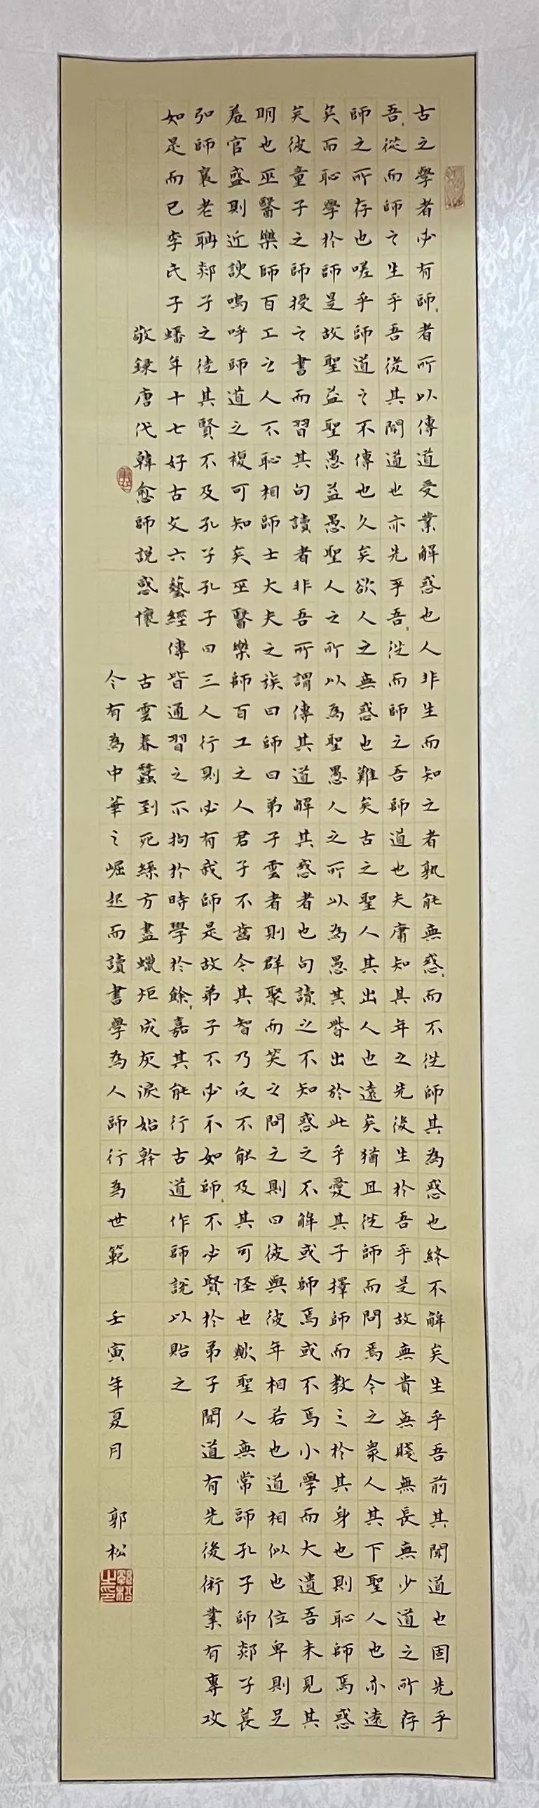 古之學者必有師、者所以傳道受業解惑也人非生而知之者孰能無惑、而不從師其為惑也終不解矣生乎吾前其聞道也固先乎
吾、從而師之生乎吾後其聞道也亦先乎吾、從而師之吾師道也夫庸知其年之先後生於吾乎是故無貴無賤無長無少道之所存
師之所存也嗟乎師道之不傳也久矣欲人之無惑也難矣古之聖人其出人也遠矣猶且從師而問焉今之眾人其下聖人也亦遠
矣而恥學於師是故聖益聖愚益愚聖人之所以為聖愚人之所以為愚其皆出於此乎愛其子擇師而教之於其身也則恥師焉惑
矣彼童子之師授之書而習其句讀者非吾所謂傳其道解其惑者也句讀之不知惑之不解或師焉或不焉小學而大遺吾未見其
明也巫醫樂師百工之人不恥相師士大夫之族曰師曰弟子雲者則群聚而笑之問之則曰彼與彼年相若也道相似也位卑則足
羞官盛則近諛嗚呼師道之複可知矣巫醫樂師百工之人君子不齒今其智乃反不能及其可怪也歟聖人無常師孔子師郯子萇
弘師襄老聃郯子之徒其賢不及孔子孔子曰三人行則必有我師是故弟子不必不如師、不必賢於弟子聞道有先後術業有專攻
如是而已李氏子蟠年十七好古文六藝經傳皆通習之不拘於時學於餘、嘉其能行古道作師說以貽之
敬錄唐代韓愈師說惑懷 古雲春蠶到死絲方盡蠟炬成灰淚始幹
今有為中華之崛起而讀書學為人師行為世範 壬寅年夏月 郭松
郭松之印